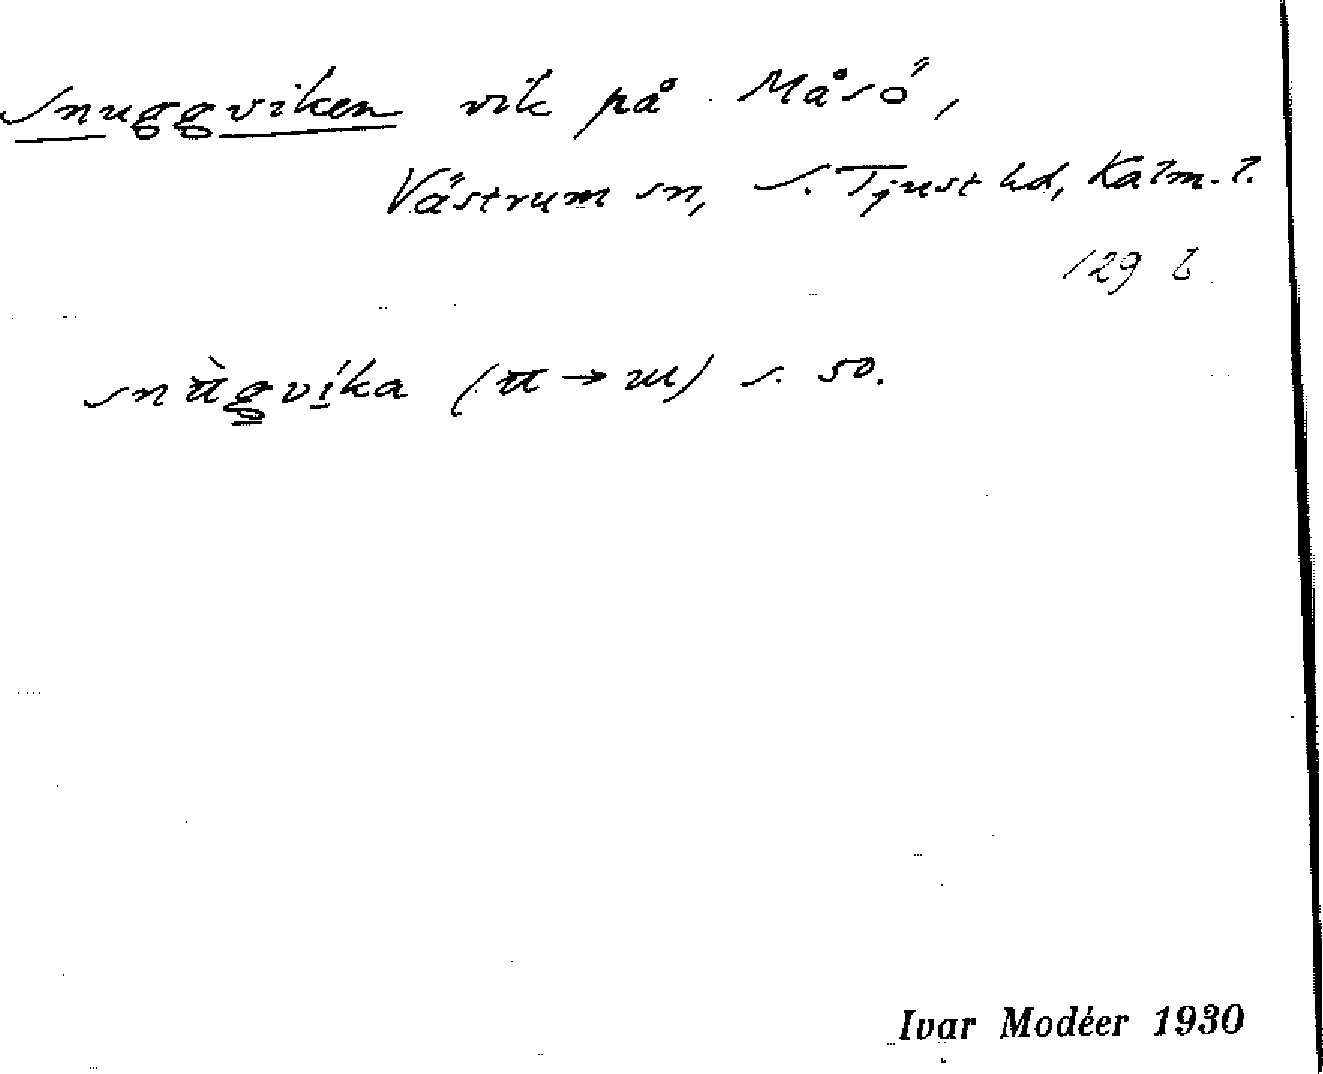 Snuggviken vik på Måsö,
Västrum sn, S. Tjust hd, Kalm. l.
129 b
snùgvíka (u → ɯ) s. 50.
Ivar Modéer 1930